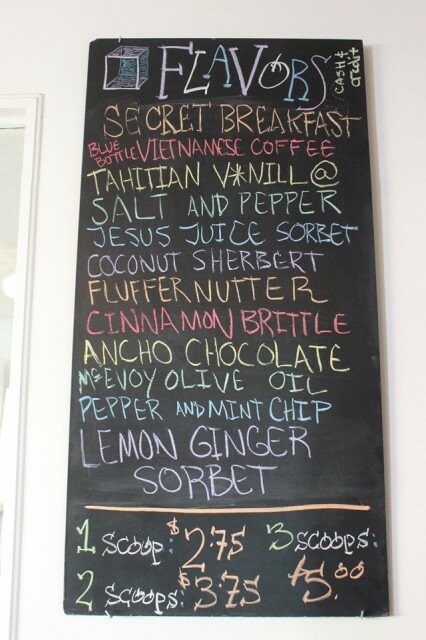 FLAVORS CASH & Credit
SECRET BREAKFAST
BLUE BOTTLE VIETNAMESE COFFEE
TAHITIAN V*NILL@
SALT AND PEPPER
JESUS JUICE SORBET
COCONUT SHERBERT
FLUFFERNUTTER
CINNAMON BRITTLE
ANCHO CHOCOLATE
McEVOY OLIVE OIL
PEPPER AND MINT CHIP
LEMON GINGER
SORBET
1 SCOOP: $2.75 3 SCOOPS:
2 SCOOPS: $3.75 $5.00